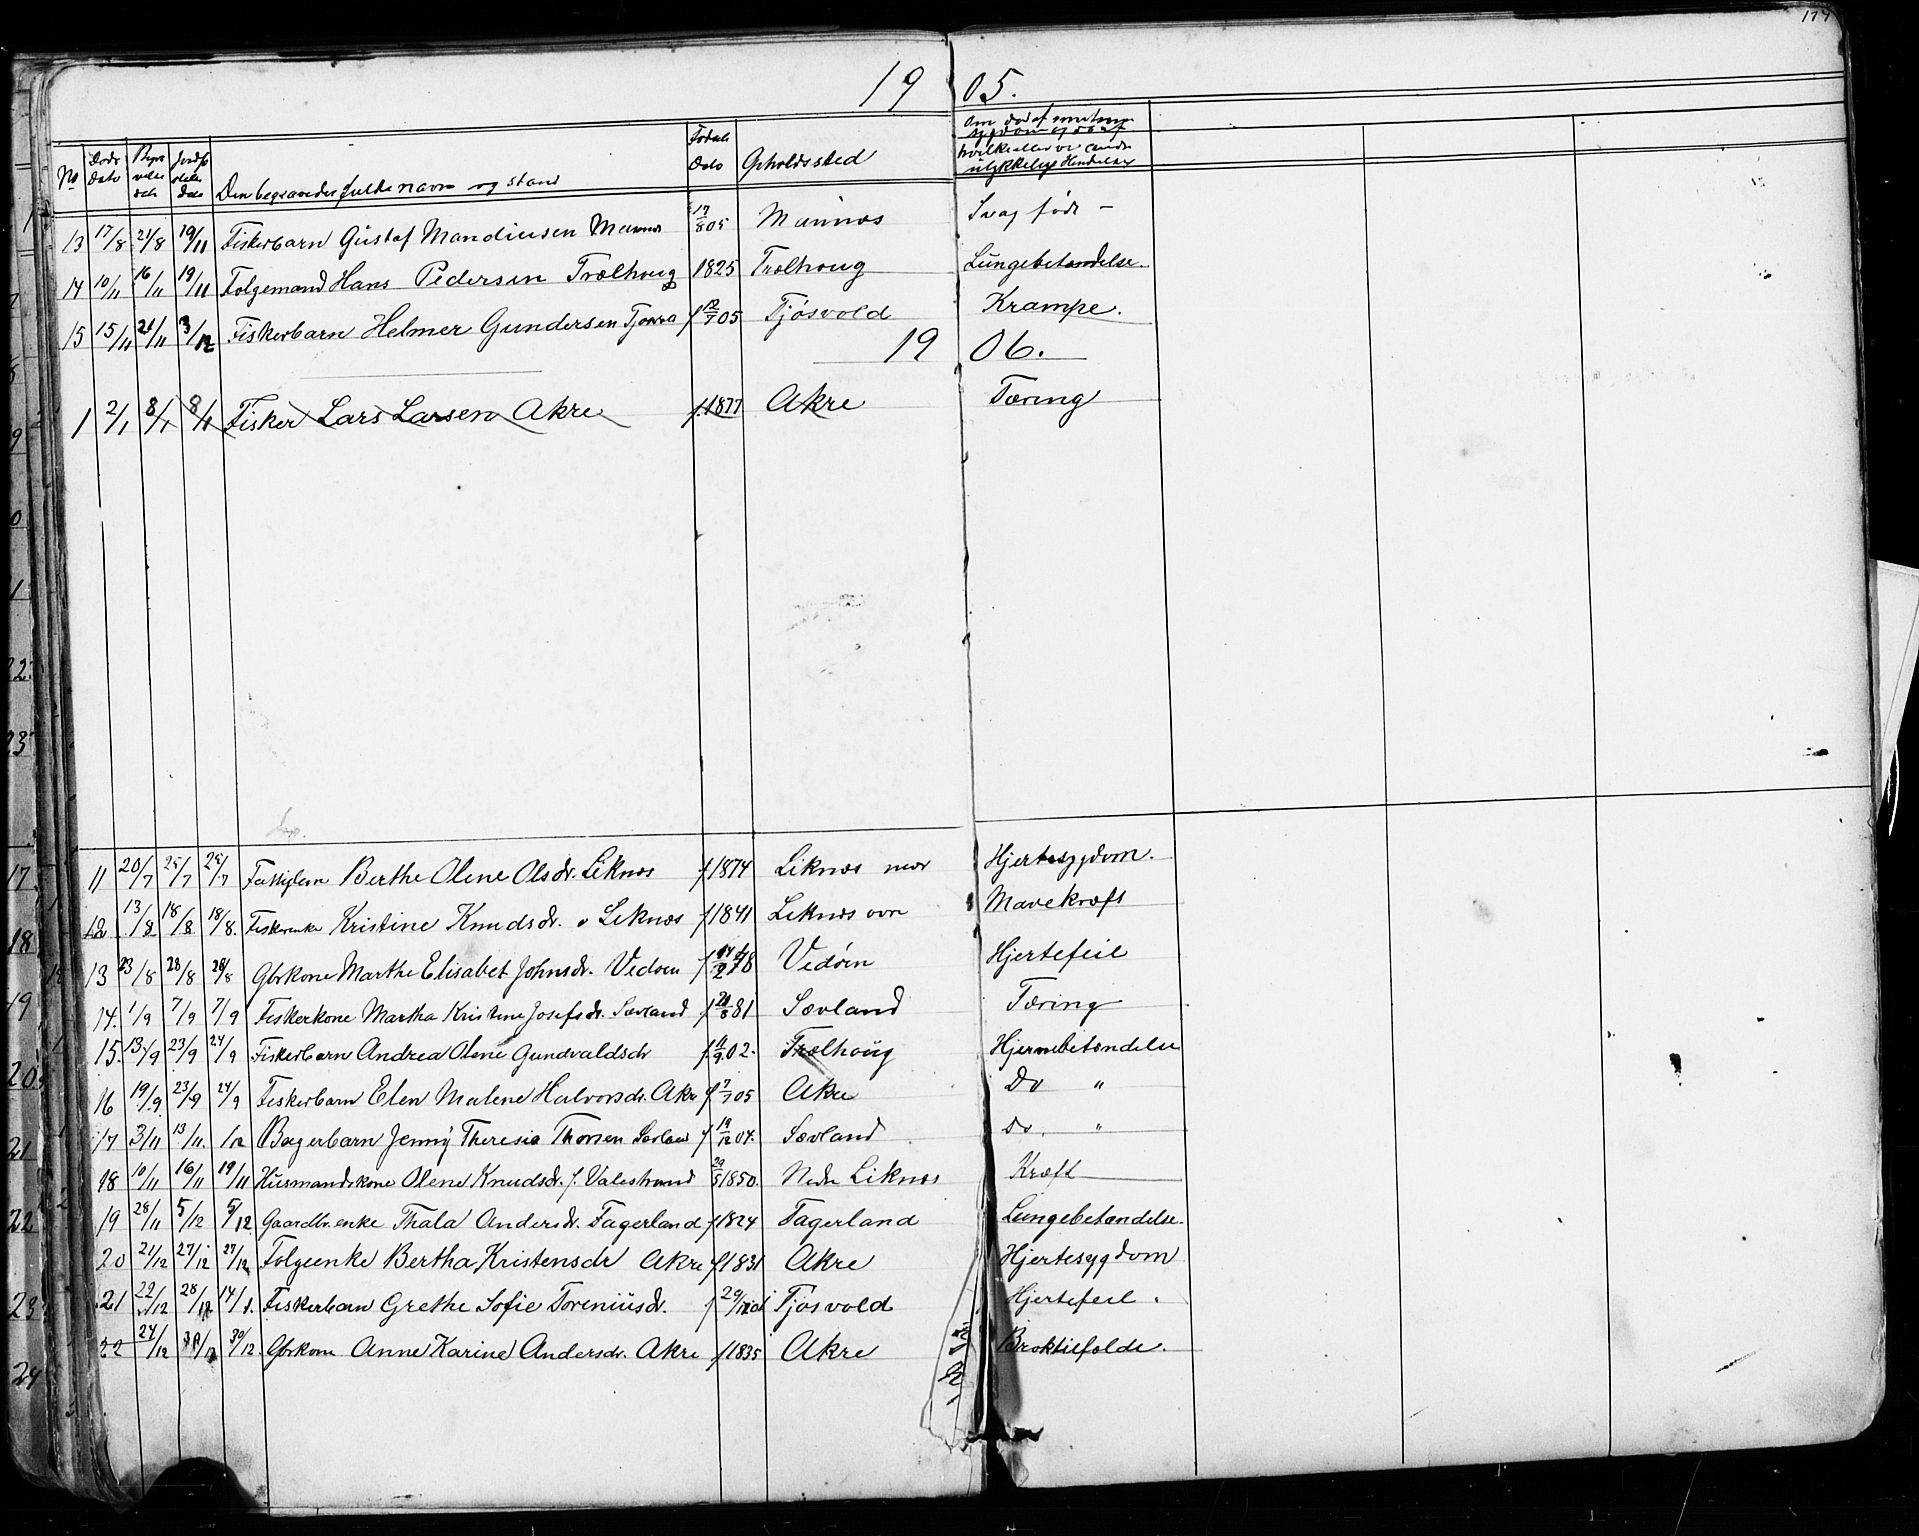 174
19 05.
No Døds Dato Begra velses dato Jordfæ stelses Dato Den begravedes fulde navn og stand Fødsels Dato Opholdssted Om død af smitsom sygdom og da af hvilken eller ved anden ulykkelig Hendelse
13 17/8 21/8 19/11 Fiskerbarn Gustaf Mandiusen Mannes 17/8 05 Mannes Svag født -
14 10/11 16/11 19/11 Folgemand Hans Pedersen Trælhoug 1825 Trælhoug Lungebetændelse.
15 15/11 21/11 3/12 Fiskerbarn Helmer Gundersen f 12/7 05 Tjøsvold Krampe.
19 06.
1 2/1 8/1 8/1 Fisker Lars Larsen Akre f.1877 Akre Tæring
11 20/7 25/7 25/7 Berthe Olene Olsdr. Liknes f1874 Liknes Hjertesygdom.
12 13/8 18/8 18/8. Fiskerenke Kristine Knudsdr. Liknes f1841 Liknes Mavekræft
13 23/8 28/8 28/8 Gbrkone Marthe Elisabet Johnsdr. Vedøen f Vedøen Hjertefeil
14. 1/9 7/9 7/9 Fiskerkone Martha Kristine Josefsdr. Sævland f 81 Sævland Tæring
15. 13/9 23/9 24/9 Fiskerbarn Andrea Olene Gundvaldsdr f. 11/9 02. Trælhoug Hjernebetændelse
16 19/9 23/9 24/9 Fiskerbarn Elen Malene Halvorsdr. Akre f 7/7 05 Akre Do "
17 3/11 13/11. 1/12 Bagerbarn Jenny Theresia Thorsen Sævland f 19/12 04. Sævland Do. "
18 10/11 16/11 19/11 Husmandskone Olene Knudsdr. f. Valestrand 29/5 1850. Nedre Liknes Kræft
19 28/11 5/12 5/12 Gaardbr.enke Thala Andersdr. Fagerland f1824 Fagerland Lungebetændelse.
20 21/12 27/12 27/12 Folgeenke Bertha Kristensdr Akre f1831 Akre Hjertesygdom
21 22/12 28/12 14/1. Fiskerbarn Grethe Sofie Toreniusdr. f Tjøsvold Hjertefeil.
22 24/12 30/12 30/12. Gbrkone Anne Karine Andersdr. Akre f1835 Akre